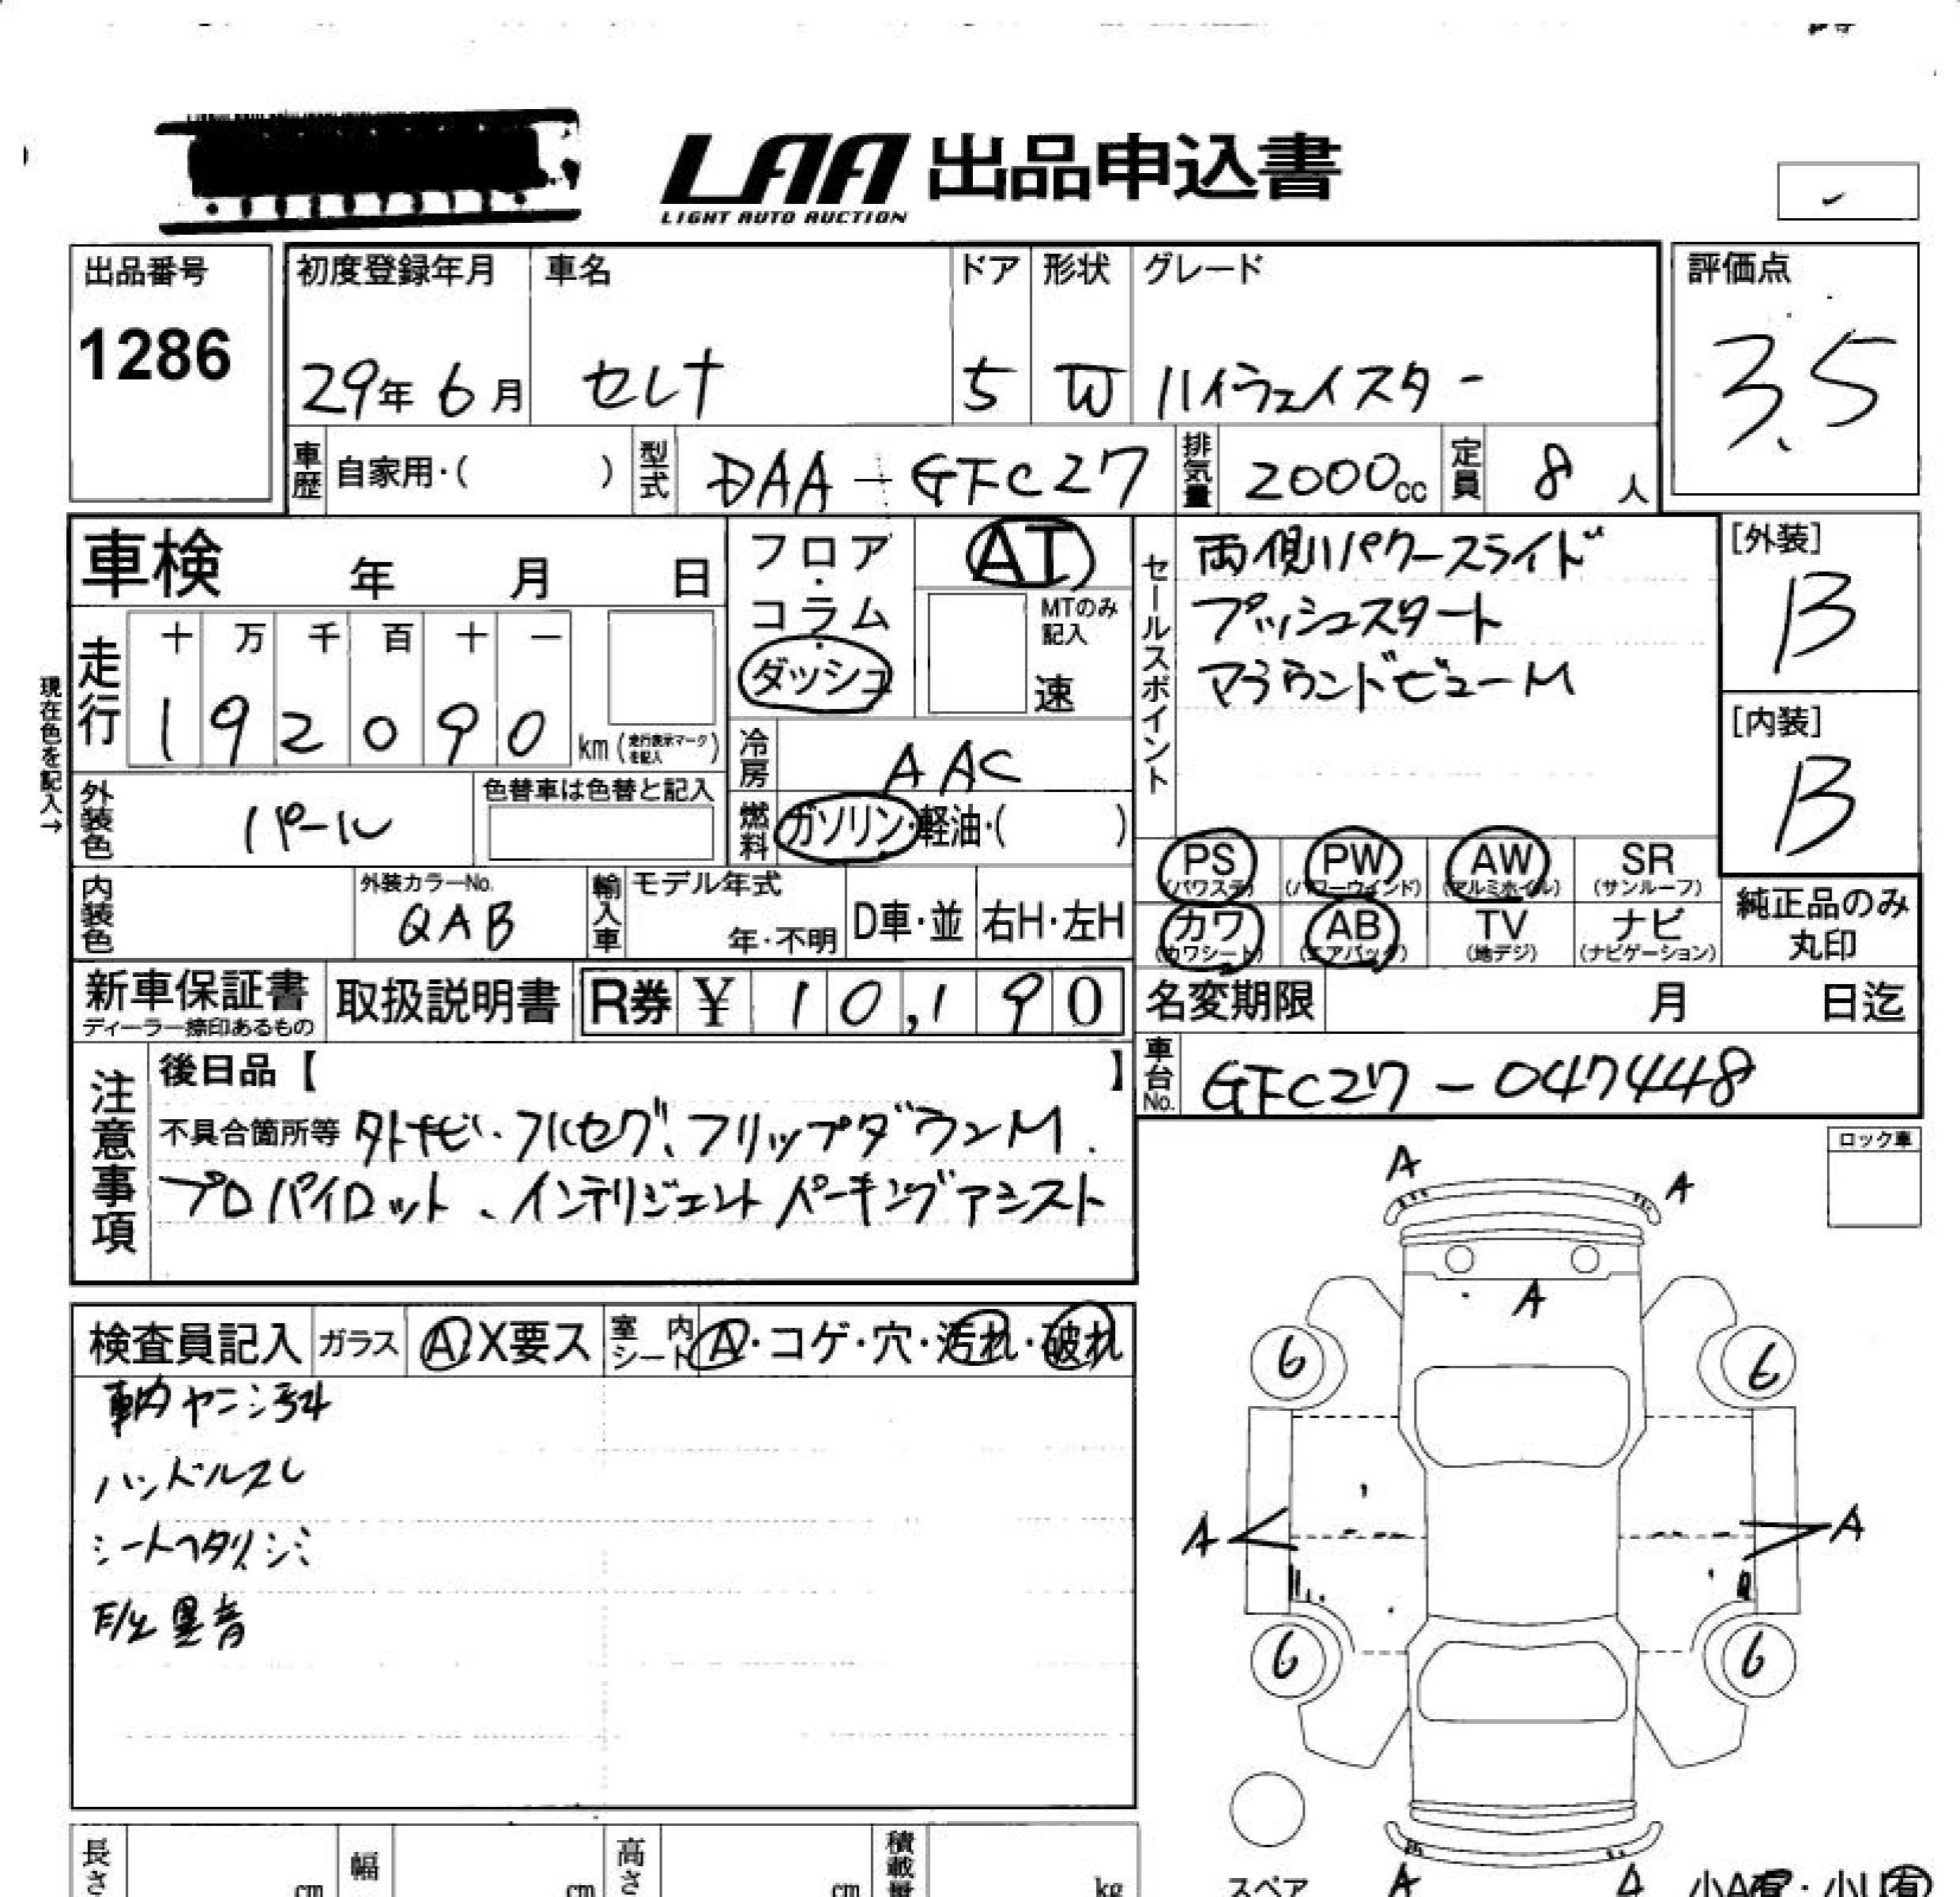 LAA 出品申込書
LIGHT AUTO AUCTION
出品番号
1286
初度登録年月
29年 6月
車名
セレナ
ドア
5
形状
W
グレード
ハイウェイスター
評価点
3.5
車歴 自家用・( )
型式 DAA-GFC27
排気量 2000cc
定員 8人
車検 年 月 日
フロア・コラム・ダッシュ
AT
MTのみ記入
速
セールスポイント
両側パワースライド
プッシュスタート
アラウンドビューM
[外装]
B
[内装]
B
現在色を記入→
走行
十 万 千 百 十 一
1 9 2 0 9 0 km (走行表示マークを記入)
冷房 AAC
外装色 パール
色替車は色替と記入
燃料 ガソリン・軽油・( )
PS (パワステ)
PW (パワーウインド)
AW (アルミホイル)
SR (サンルーフ)
カワ (カワシート)
AB (エアバッグ)
TV (地デジ)
ナビ (ナビゲーション)
純正品のみ丸印
内装色
外装カラーNo.
QAB
輸入車
モデル年式
年・不明
D車・並
右H・左H
新車保証書
ディーラー捺印あるもの
取扱説明書
R券 ¥ 10,190
名変期限 月 日迄
車台No. GFC27-047448
注意事項
後日品【 】
不具合箇所等 外ナビ、フルセグ、フリップダウンM.
プロパイロット、インテリジェントパーキングアシスト
ロック車
検査員記入
ガラス A・X要ス
室内シート A・コゲ・穴・汚れ・破れ
車内ヤニシミ
ハンドルスレ
シートヘタリ、シミ
異音
A A
A
6 6
A A
6 6
長さ cm
幅 cm
高さ cm
積載量 kg
スペア
A A
小A有・小U有